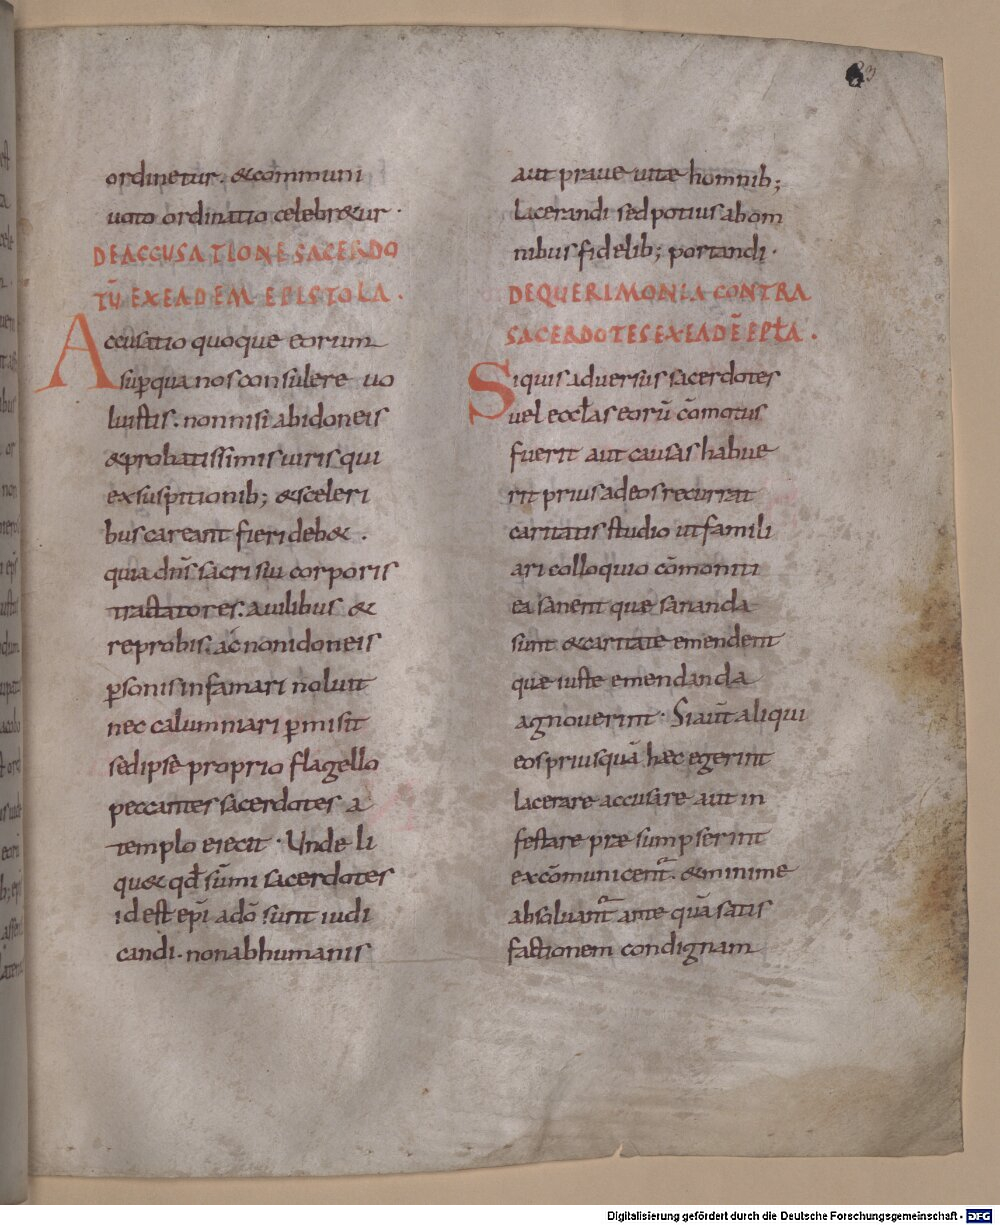 ordinetur. &communi
uoto ordinatio celebr&ur.
DEACCUSATIONE SACERDO
TŪ EXEADEM EPISTOLA.
Accusatio quoque eorum
suꝑqua nos consulere uo
luistis. nonnisi abidoneis
&probatissimis uiris qui
exsuspitionib; &sceleri
bus careant fieri deb&.
quia dn̄s sacri sui corporis
tractatores. auilibus &
reprobis. ac nonidoneis
ꝑsonis infamari noluit
nec calumniari ꝑmisit
sedipse proprio flagello
peccantes sacerdotes a
templo eiecit. Unde li
qu& qđ sūmi sacerdotes
idest ep̄i adō sunt iudi
candi. nonabhumanis
aut praue uitæ homnib;
lacerandi sedpotius abom
nibus fidelib; portandi.
DEQUERIMONIA CONTRA
SACERDOTES EXEADĒ EPŁA.
Siquis aduersus sacerdotes
uel eccłas eorū cōmotus
fuerit aut causas habue
rit prius adeos recurrat
caritatis studio utfamili
ari colloquio cōmoniti
ea sanent quæ sananda
sunt &caritate emendent
quæ iuste emendanda
agnouerint. Siaūt aliqui
eos priusquā hæc egerint
lacerare accusare aut in
festare præsumpserint
excōmunicent᷑. &minime
absoluant᷑ ante quā satis
factionem condignam
Digitalisierung gefördert durch die Deutsche Forschungsgemeinschaft - DFG